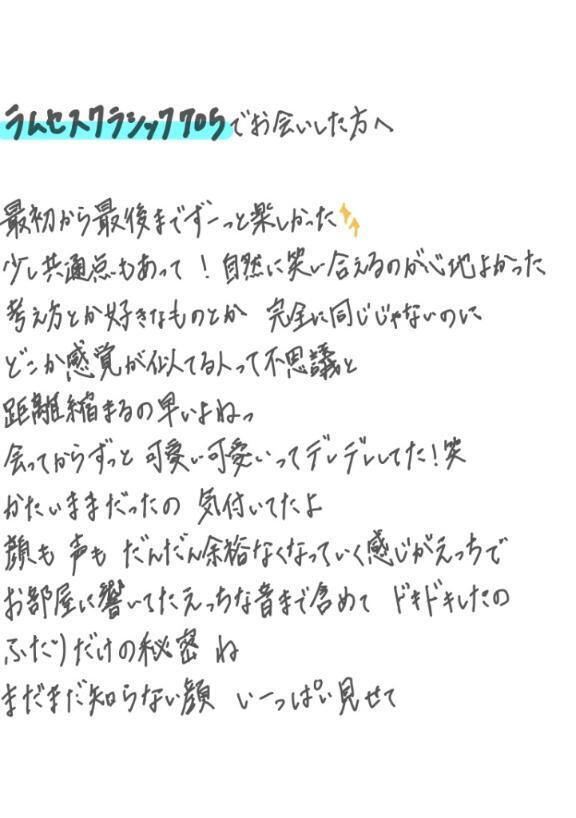 ラムセスクラシック705でお会いした方へ
最初から最後までずーっと楽しかった
少し共通点もあって！自然に笑い合えるのが心地よかった
考え方とか好きなものとか 完全に同じじゃないのに
どこか感覚が似てる人って不思議と
距離縮まるの早いよねっ
会ってからずっと 可愛い可愛いってデレデレしてた！笑
かたいままだったの 気付いてたよ
顔も 声も だんだん余裕なくなっていく感じがえっちで
お部屋に響いてたえっちな音まで含めて ドキドキしたの
ふたりだけの秘密 ね
まだまだ知らない顔 いーっぱい見せて